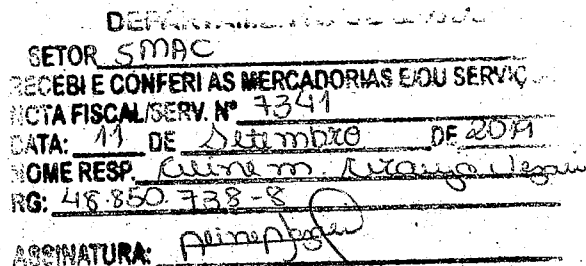 SETOR SMAC
RECEBI E CONFERI AS MERCADORIAS E/OU SERVIÇ
NOTA FISCAL/SERV. Nº 7341
DATA: 11 DE Setembro DE 2019
NOME RESP. Aline m. Araujo
RG: 48.850.738-8
ASSINATURA: